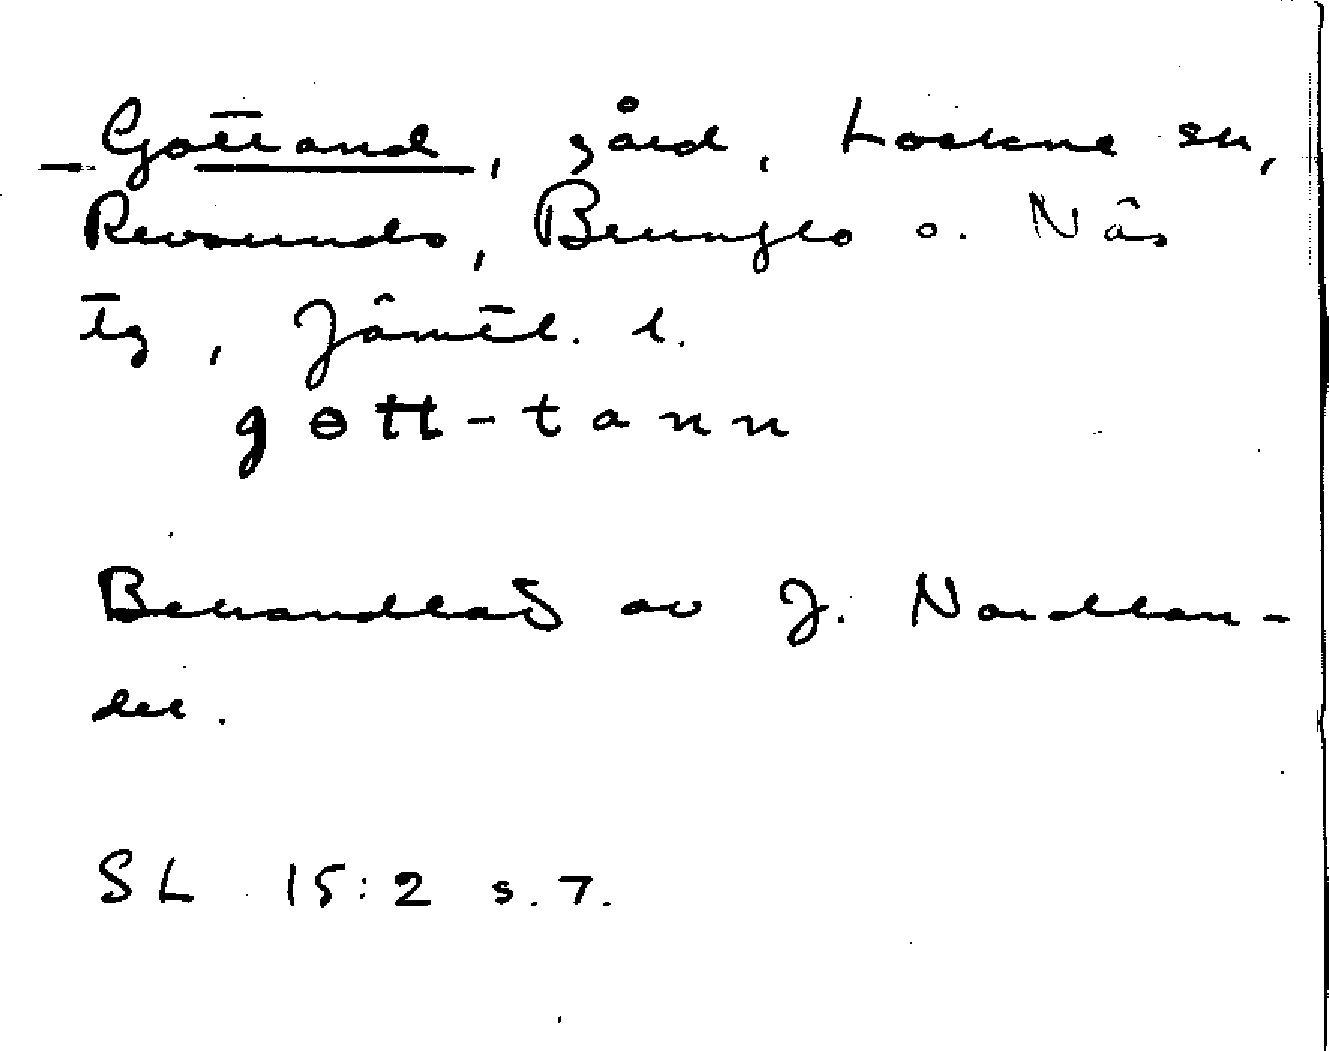 Gottand, gård, Lockne sn,
Revsunds, Brunflo o. Näs
tg, Jämtl. l.
gott-tann
Behandlad av J. Nordlan-
der.
SL 15:2 s. 7.